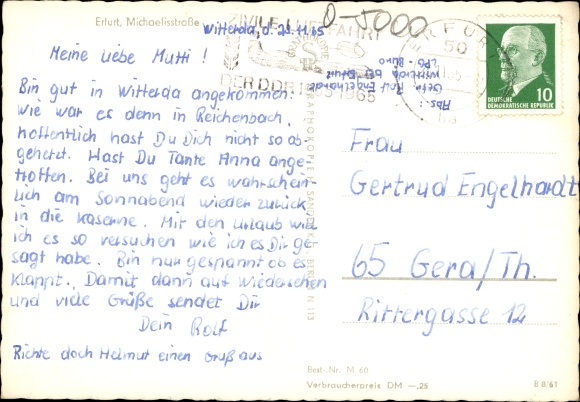 Erfurt, Michaelisstraße
Witterda, d. 23.11.65
Meine liebe Mutti!
Bin gut in Witterda angekommen.
wie war es denn in Reichenbach,
hoffentlich hast Du Dich nicht so ab-
gehetzt. Hast Du Tante Anna ange-
troffen. Bei uns geht es wahrschein-
lich am Sonnabend wieder zurück
in die Kaserne. Mit den Urlaub will
ich es so versuchen wie ich es Dir ge-
sagt habe. Bin nur gespannt ob es
klappt. Damit dann auf Wiedersehen
und viele Grüße sendet Dir
Dein Rolf
Richte doch Helmut einen Gruß aus
D-5000
ZIVILE LUFTFAHRT
DER DDR 1955-1965
ERFURT
50
Abs.:
Gefr. Rolf Engelhardt
Witterda bei Erfurt
LPG-Büro
DEUTSCHE
DEMOKRATISCHE REPUBLIK
10
Frau
Gertrud Engelhardt
65 Gera/Th.
Rittergasse 12
Best.-Nr. M 60
Verbraucherpreis DM —,25
B 8/61